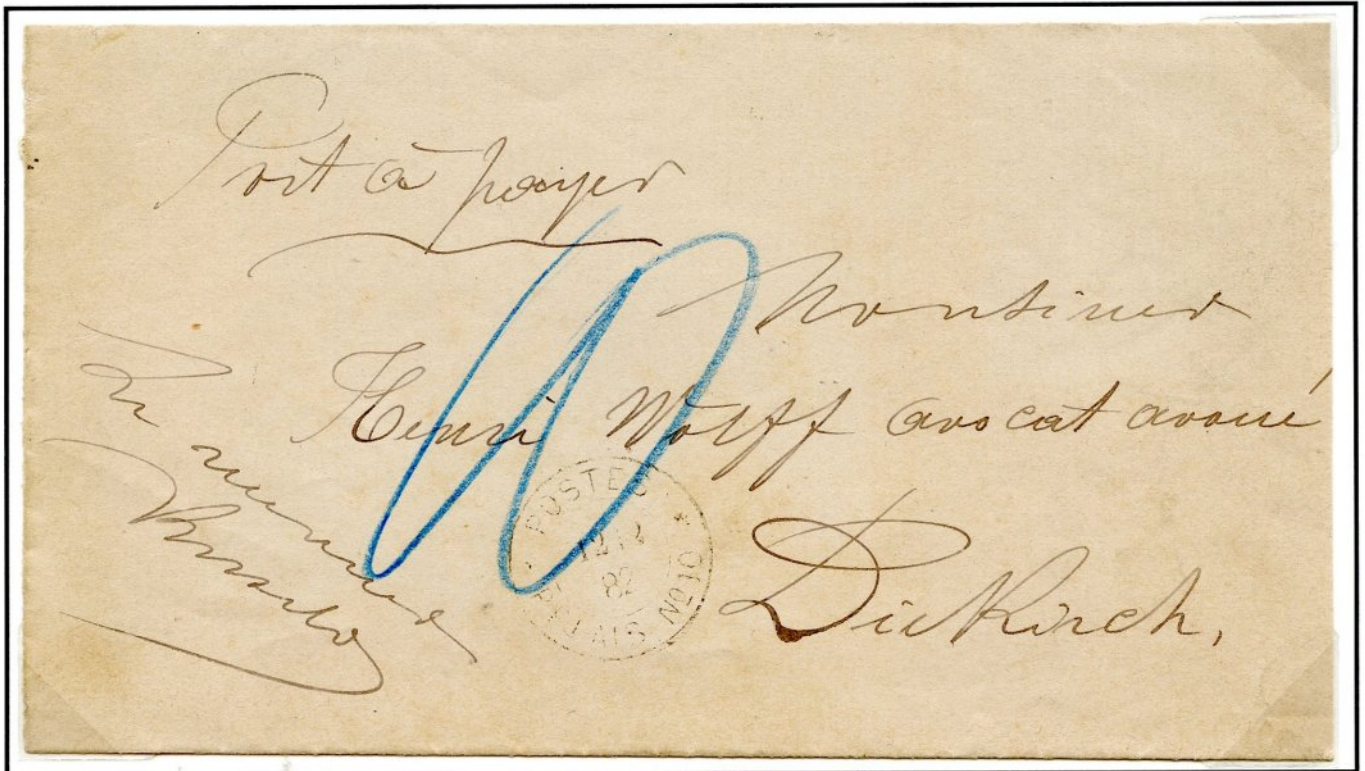 Port à payer
10
Monsieur
Henri Wolff avocat avoué
Diekirch.
POSTES *
12 12
82
RELAIS No 10